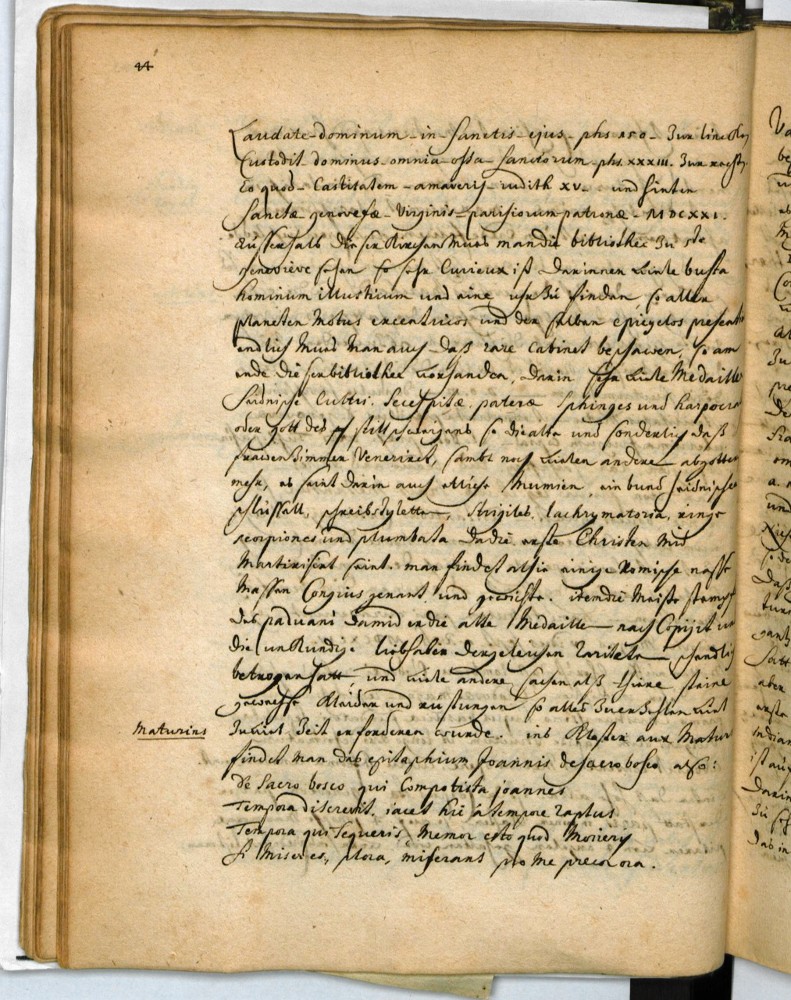 44
Laudate dominum in Sanctis ejus phs 150 Zur lincken
Custodit dominus omnia ossa Sanctorum phs. XXXIII. Zur rechten
Eo quod Castitatem amaveris judith XV. und hinten
Sanctæ genovefæ Virginis parisiorum patronæ MDCXXI.
Ausserhalb dieser Kirchen mus man die bibliothec Zu Ste
genevieve sehen so sehr Curieux ist darinnen Viele busta
hominum illustrium und eine uhr Zu finden, so aller
planeten Motus excentricos und der selben epicyclos
endlich Mus Man auch das rare Cabinet beschauen, so am
ende dieser bibliothec vorhanden, darin sehr Viele Medaille
heidnische Cultri. Secespitæ pateræ Sphinges und
oder gott des stillschweigens so die alte und sonderlich das
frauenzimmer Veneriret, sambt noch Vielen andern abgötter
mehr, es seint darin auch etliche Mumien, ein bund heidnische
schlüssell, schreibstylette, Strigiles, lachrymatoria, ringe
scorpiones und plumbata da die erste Christen Mit
Martirisirt seint. man findet alhie einige Römische nasse
Massen Congius genant und gewichte. item die
des paduani damid er die alte Medaille nach Copijrt
die unKundige liebhaber dergeleichen Rariteten schändlich
betrogen hatt, und Viele andere sachen alß thiere steine
gewechse Kleider und rüstungen so alles Zuerzehlen Viel
Maturins
Zuviel Zeit erforderen wurde. ins Kloster aux Matur
findet man das epitaphium Joannis de sacro bosco also:
De Sacro bosco qui Compotista joannes
Tempora discrevit. iacet hic à tempore raptus
Tempora qui sequeris, Memor esto quod Morieris
Si Miser es, plora, miserans pro me precor ora.